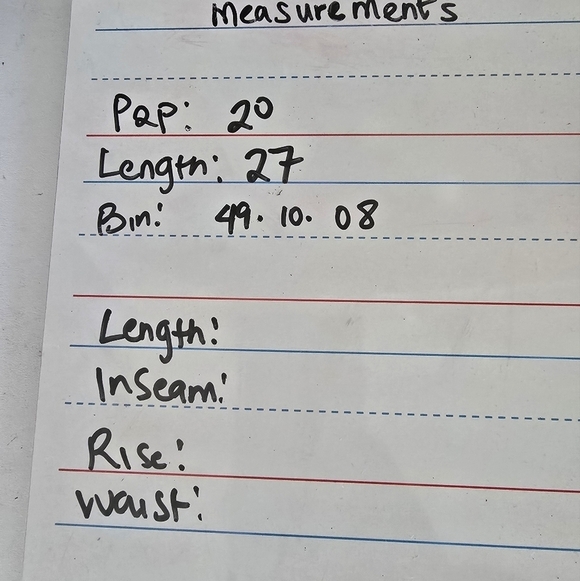 measurements
Pap: 20
Length: 27
Bin: 49. 10. 08
Length:
Inseam:
Rise:
Waist: